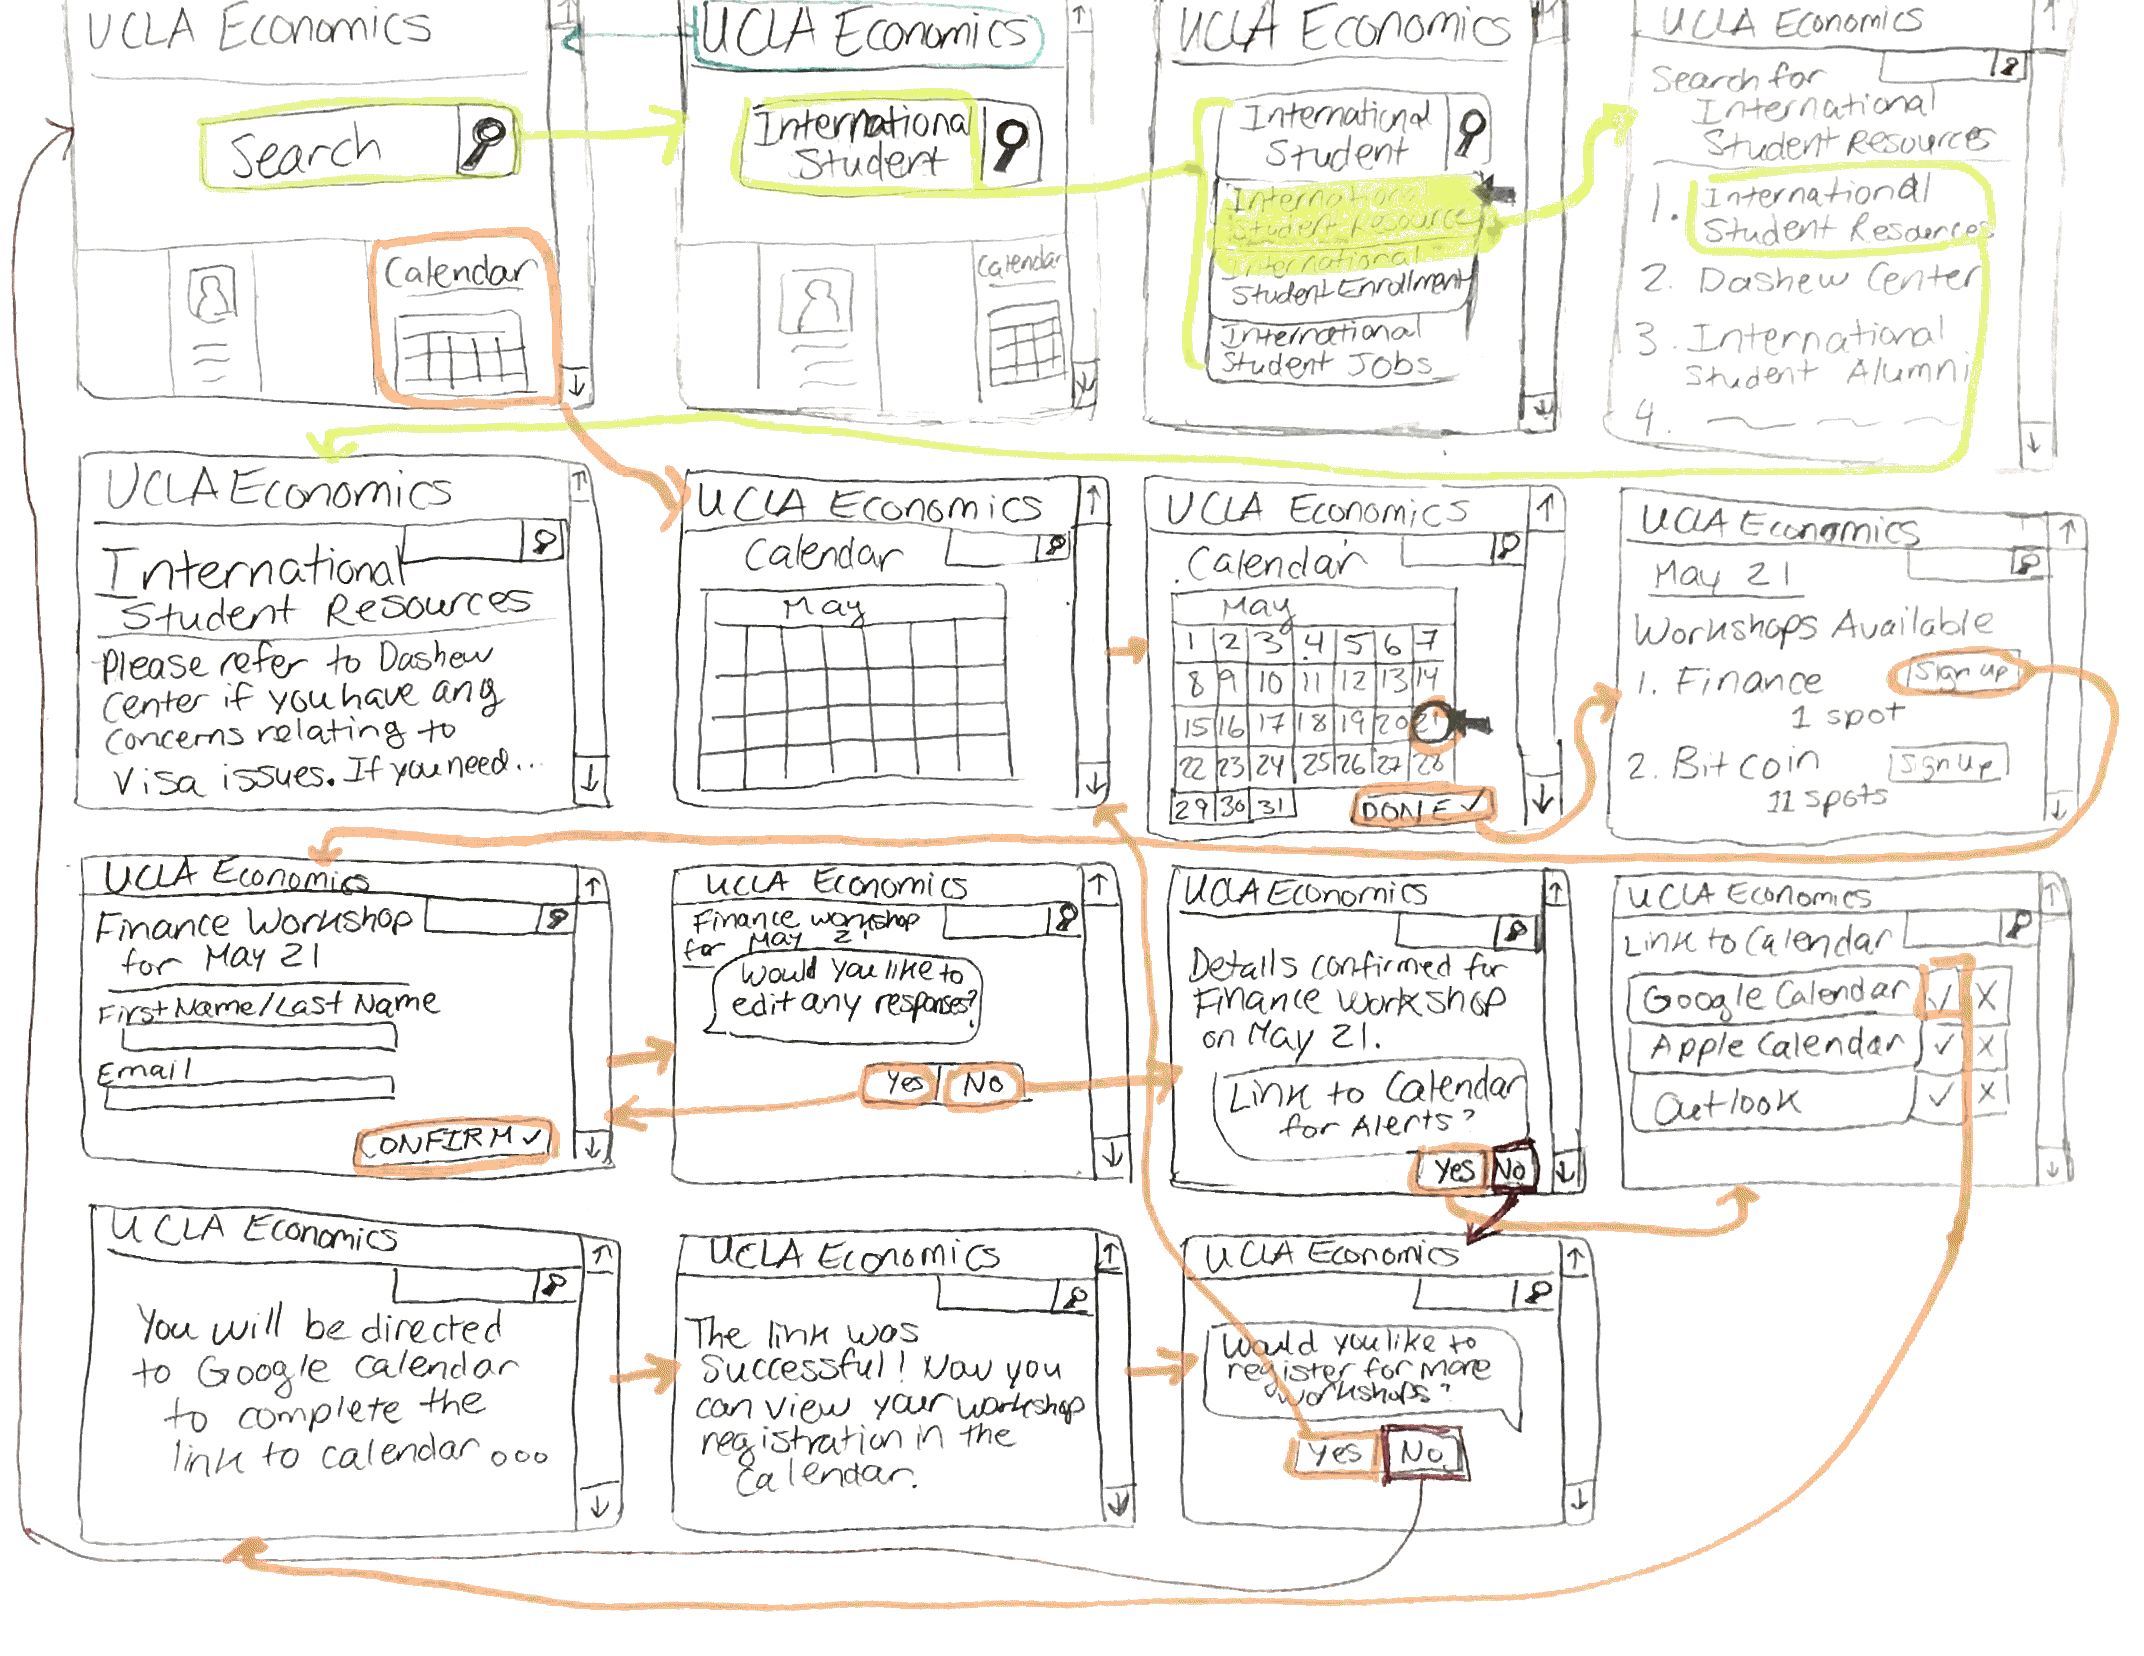 UCLA Economics
Search
Calendar
UCLA Economics
International
Student
Calendar
UCLA Economics
International
Student
International
Student Resource
International
Student Enrollment
International
Student Jobs
UCLA Economics
Search for
International
Student Resources
1. International
Student Resources
2. Dashew Center
3. International
Student Alumni
4.
UCLA Economics
International
Student Resources
Please refer to Dashew
Center if you have any
concerns relating to
Visa issues. If you need...
UCLA Economics
Calendar
May
UCLA Economics
Calendar
May
1 2 3 4 5 6 7
8 9 10 11 12 13 14
15 16 17 18 19 20 21
22 23 24 25 26 27 28
29 30 31
DONE ✓
UCLA Economics
May 21
Workshops Available
1. Finance Sign up
1 spot
2. Bitcoin Sign up
11 spots
UCLA Economics
Finance Workshop
for May 21
First Name/Last Name
Email
CONFIRM ✓
UCLA Economics
Finance workshop
for May 21
Would you like to
edit any responses?
Yes No
UCLA Economics
Details confirmed for
Finance Workshop
on May 21.
Link to Calendar
for Alerts?
Yes No
UCLA Economics
Link to Calendar
Google Calendar ✓ X
Apple Calendar ✓ X
Outlook ✓ X
UCLA Economics
You will be directed
to Google Calendar
to complete the
link to calendar...
UCLA Economics
The link was
Successful! Now you
can view your workshop
registration in the
Calendar.
UCLA Economics
Would you like to
register for more
workshops?
Yes No